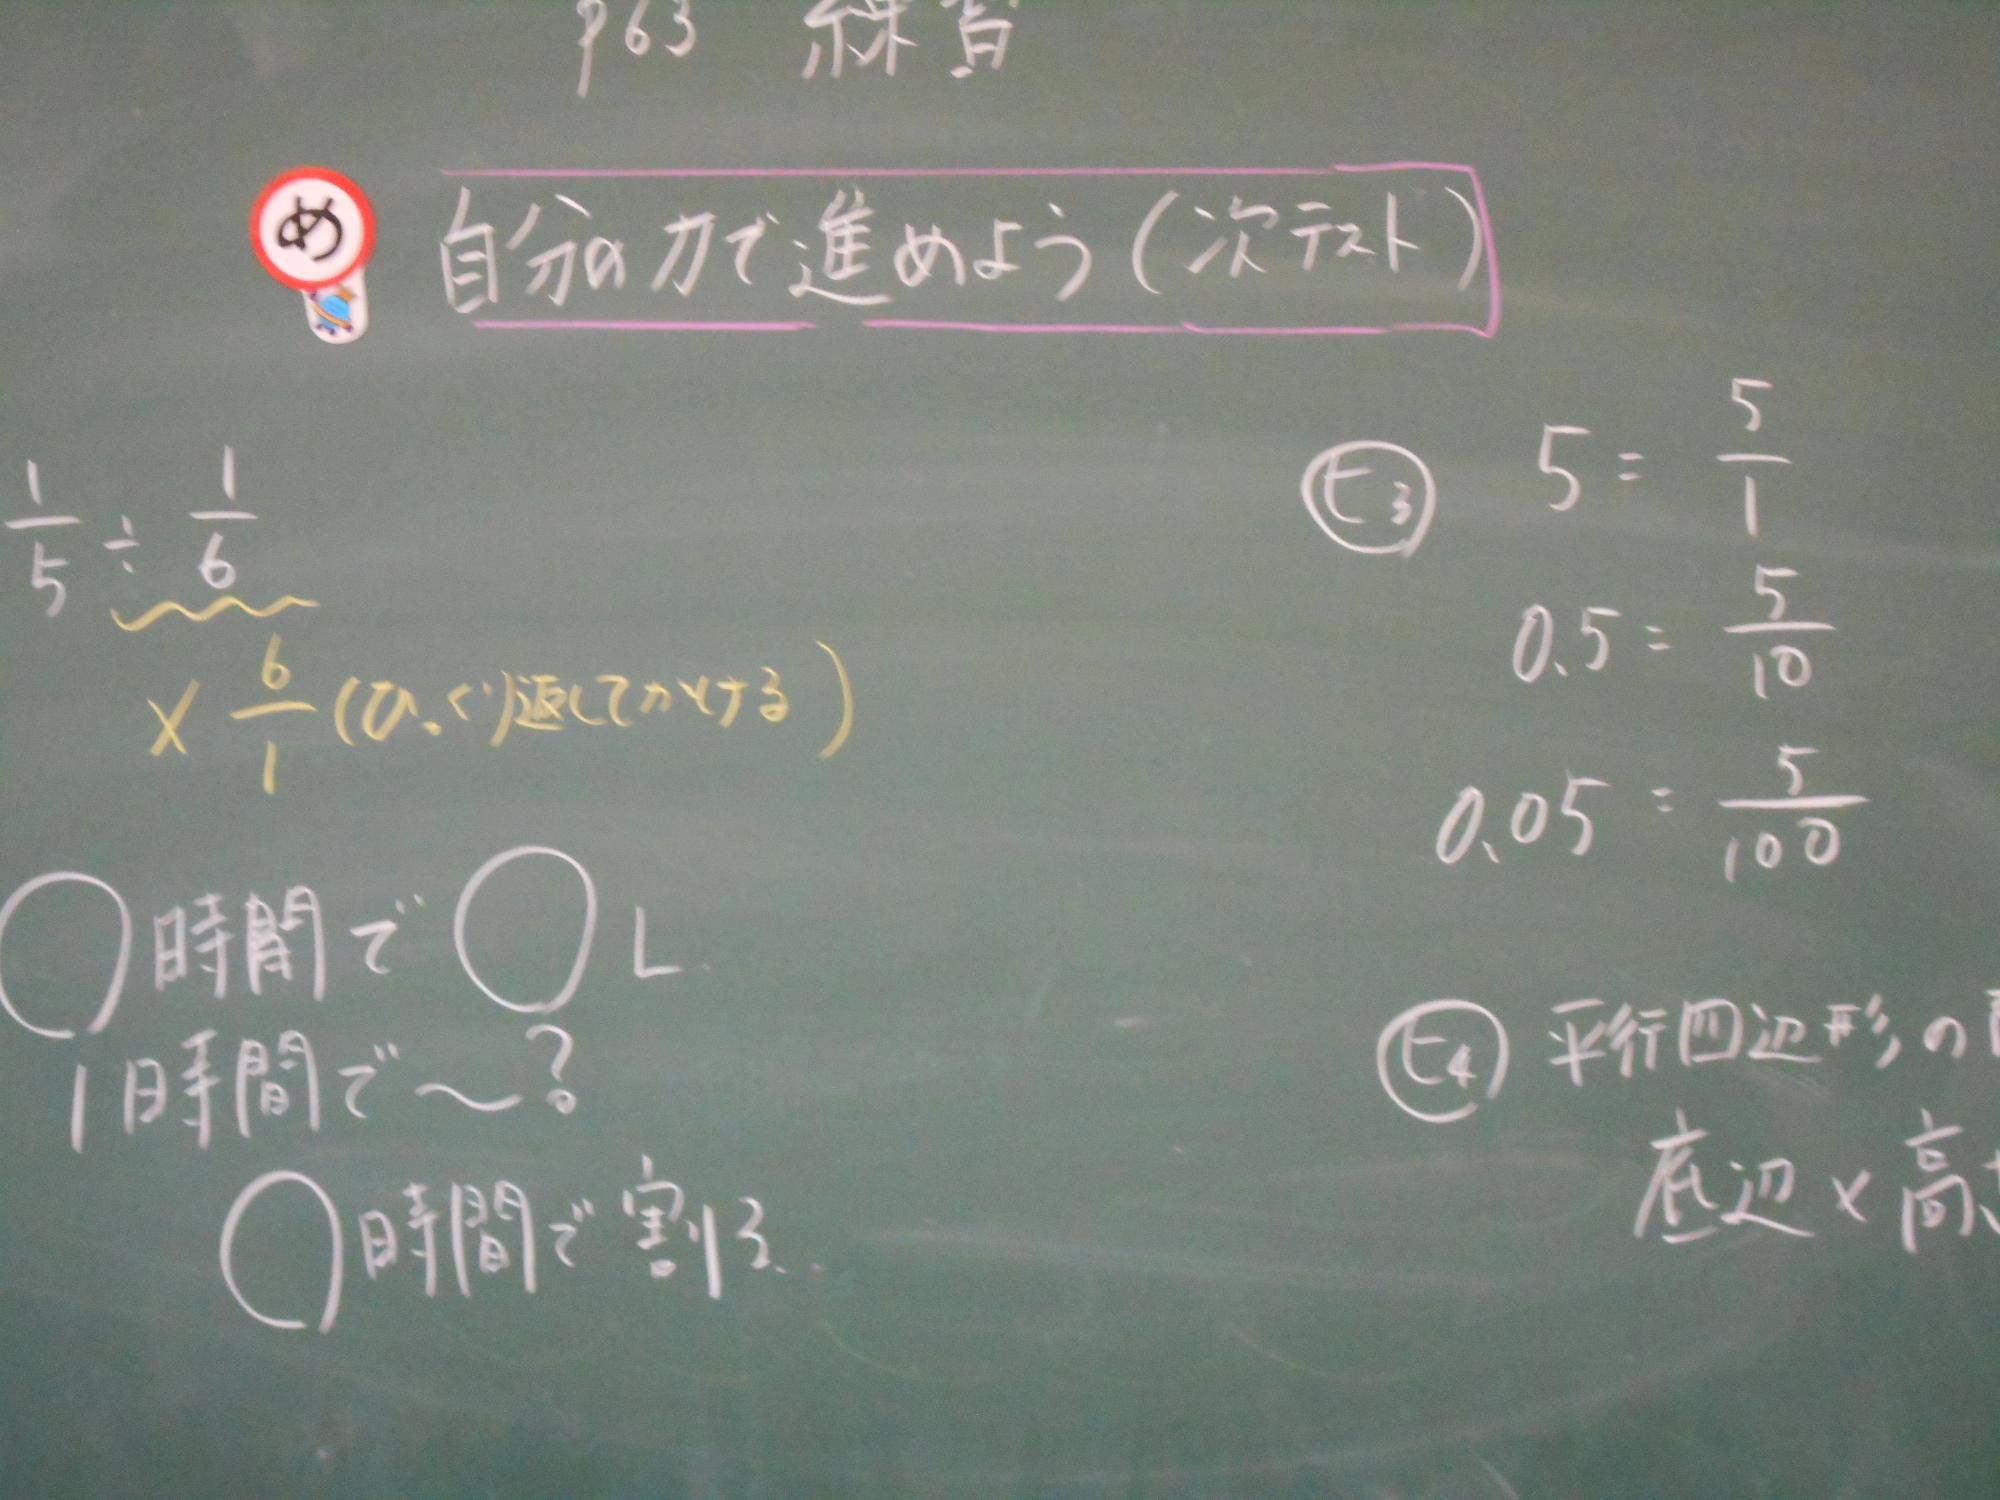 P63 練習
め 自分の力で進めよう(次テスト)
1/5 ÷ 1/6
× 6/1 (ひっくり返してかける)
○時間で○L
1時間で〜?
○時間で割る
ヒ3 5 = 5/1
0.5 = 5/10
0.05 = 5/100
ヒ4 平行四辺形の
底辺×高さ